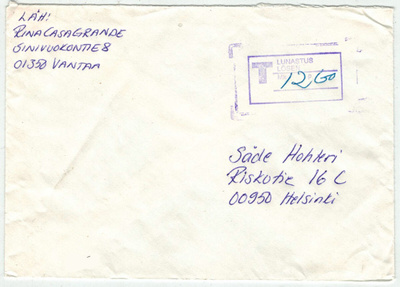 LÄH:
RINA CASAGRANDE
SINIVUOKONTIE 8
01350 VANTAA
T LUNASTUS
LÖSEN
12,60
Säde Hohteri
Riskutie 16 C
00950 Helsinki